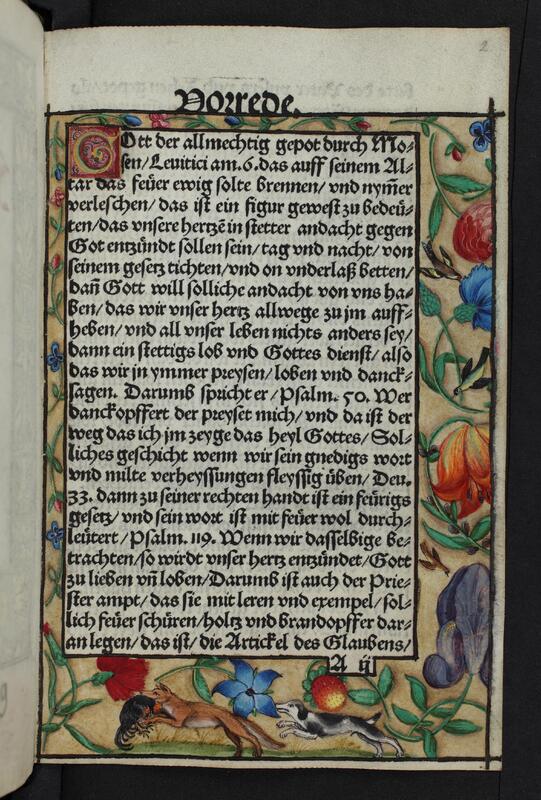 2
Vorrede.
Gott der allmechtig gepot durch Mo-
sen/ Levitici am. 6. das auff seinem Al-
tar das feüer ewig solte brennen/ vnd nym̄er
verleschen/ das ist ein figur gewest zu bedeü-
ten/ das vnsere hertzē in stetter andacht gegen
Got entzündt sollen sein/ tag vnd nacht/ von
seinem gesetz tichten/ vnd on vnderlaß betten/
dañ Gott will solliche andacht von vns ha-
ben/ das wir vnser hertz allwege zu jm auff-
heben/ vnd all vnser leben nichts anders sey/
dann ein stettigs lob vnd Gottes dienst/ also
das wir in ymmer preysen/ loben vnd danck-
sagen. Darumb spricht er/ Psalm. 50. Wer
danckopffert der preyset mich/ vnd da ist der
weg das ich jm zeyge das heyl Gottes/ Sol-
liches geschicht wenn wir sein gnedigs wort
vnd milte verheyssungen fleyssig üben/ Deu.
33. dann zu seiner rechten handt ist ein feürigs
gesetz/ vnd sein wort ist mit feüer wol durch-
leütert/ Psalm. 119. Wenn wir dasselbige be-
trachten/ so wirdt vnser hertz entzündet/ Gott
zu lieben vñ loben/ Darumb ist auch der Prie-
ster ampt/ das sie mit leren vnd exempel/ sol-
lich feüer schüren/ holtz vnd brandopffer dar-
an legen/ das ist/ die Artickel des Glaubens/
A ij